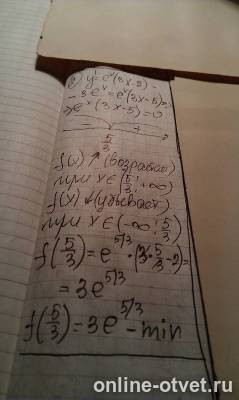 y' = eˣ(3x-2) -
- 3eˣ = eˣ(3x-5) =>
=> eˣ(3x-5) = 0
- +
5/3
f(x) ↑ (возрастает)
при x∈(5/3; +∞)
f(x) ↓ (убывает)
при x∈(-∞; 5/3)
f(5/3) = e^5/3 · (3·5/3-2) =
= 3e^5/3
f(5/3) = 3e^5/3 - min
online-otvet.ru